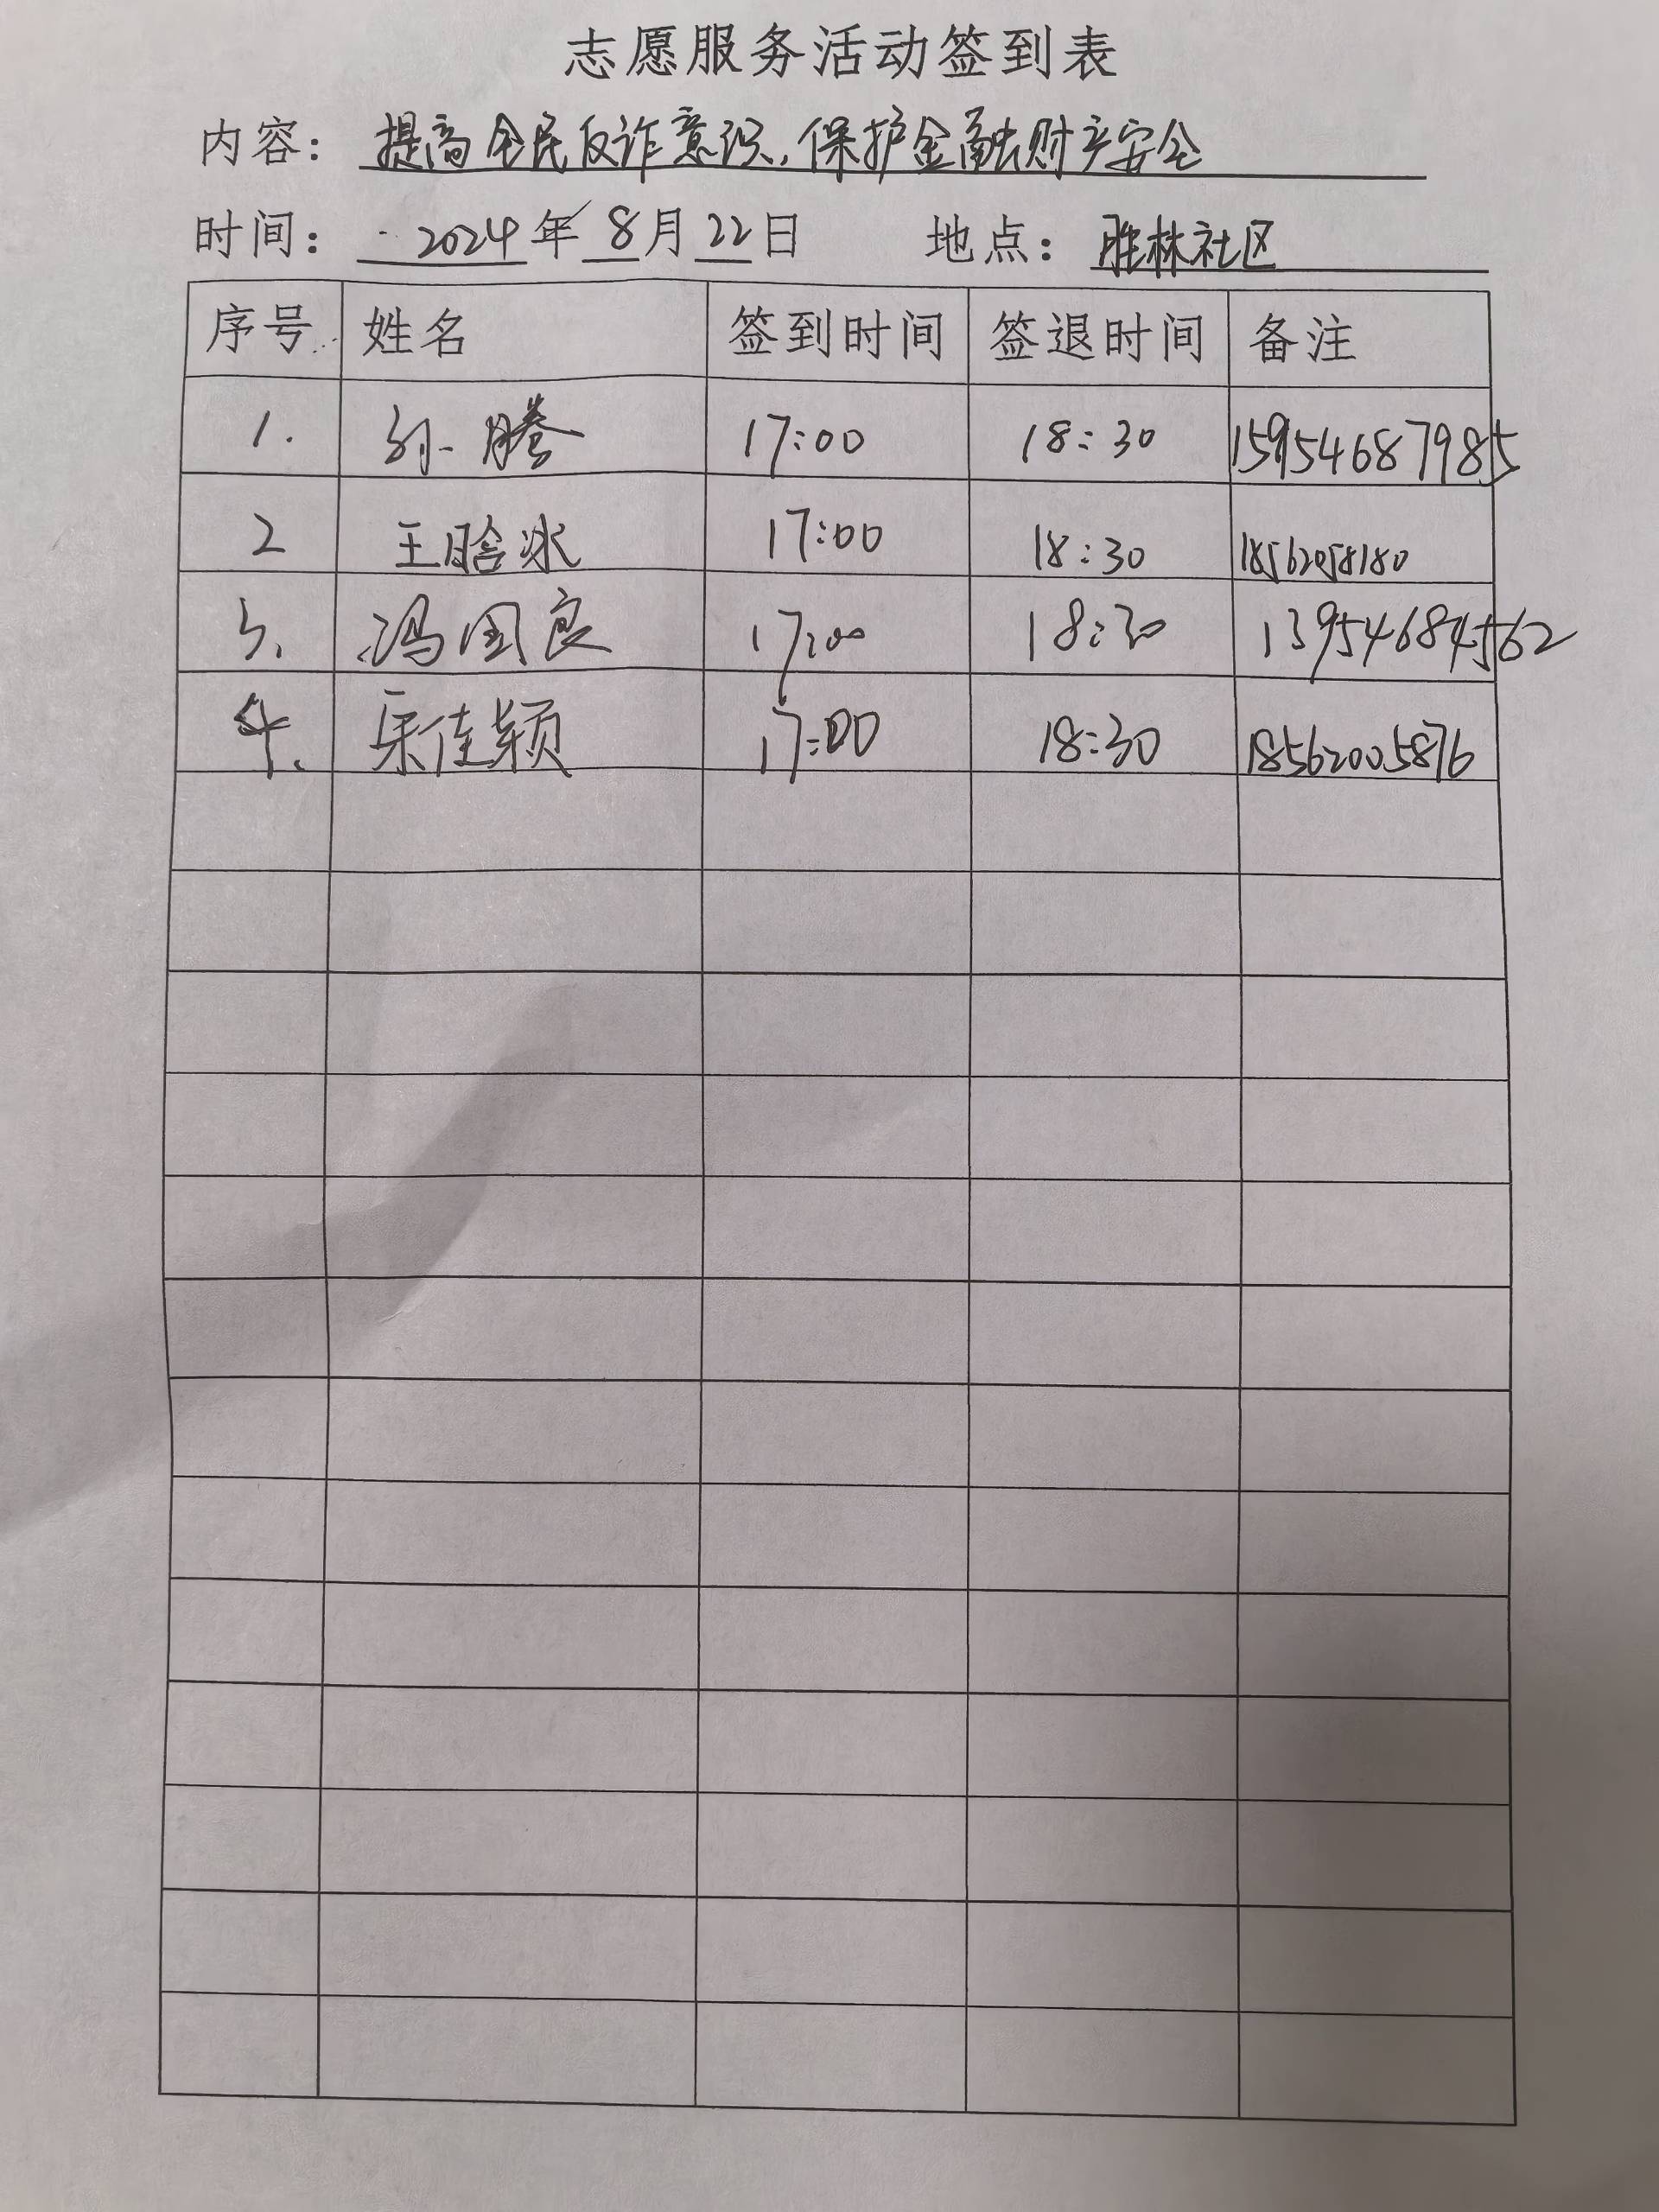 志愿服务活动签到表
内容: 提高全民反诈意识,保护金融财产安全
时间: 2024年 8月 22日 地点: 胜林社区
序号 姓名 签到时间 签退时间 备注
1. 孙腾 17:00 18:30 15954687985
2 王晗冰 17:00 18:30 18562058180
3. 冯国良 17:00 18:30 13954684562
4. 宋佳颖 17:00 18:30 18562005876